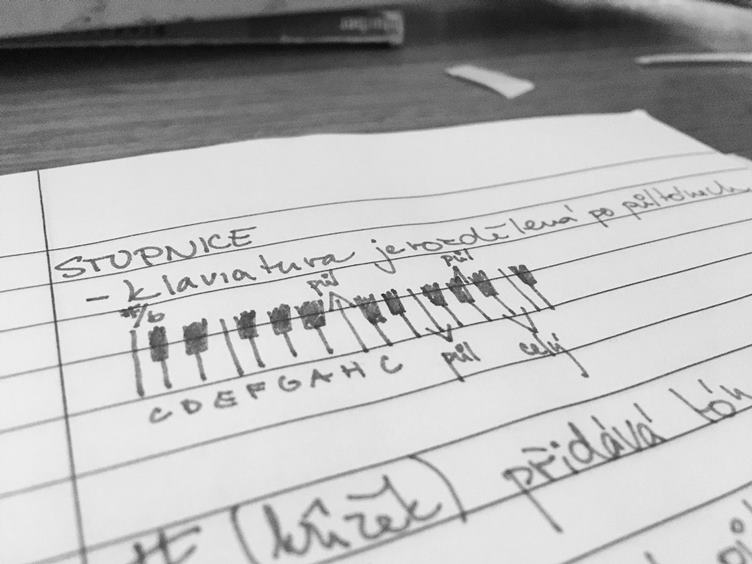 STUPNICE
- klaviatura je rozdělená po půltónech
#/b půl půl
C D E F G A H C půl celý
# (křížek) přidává tón